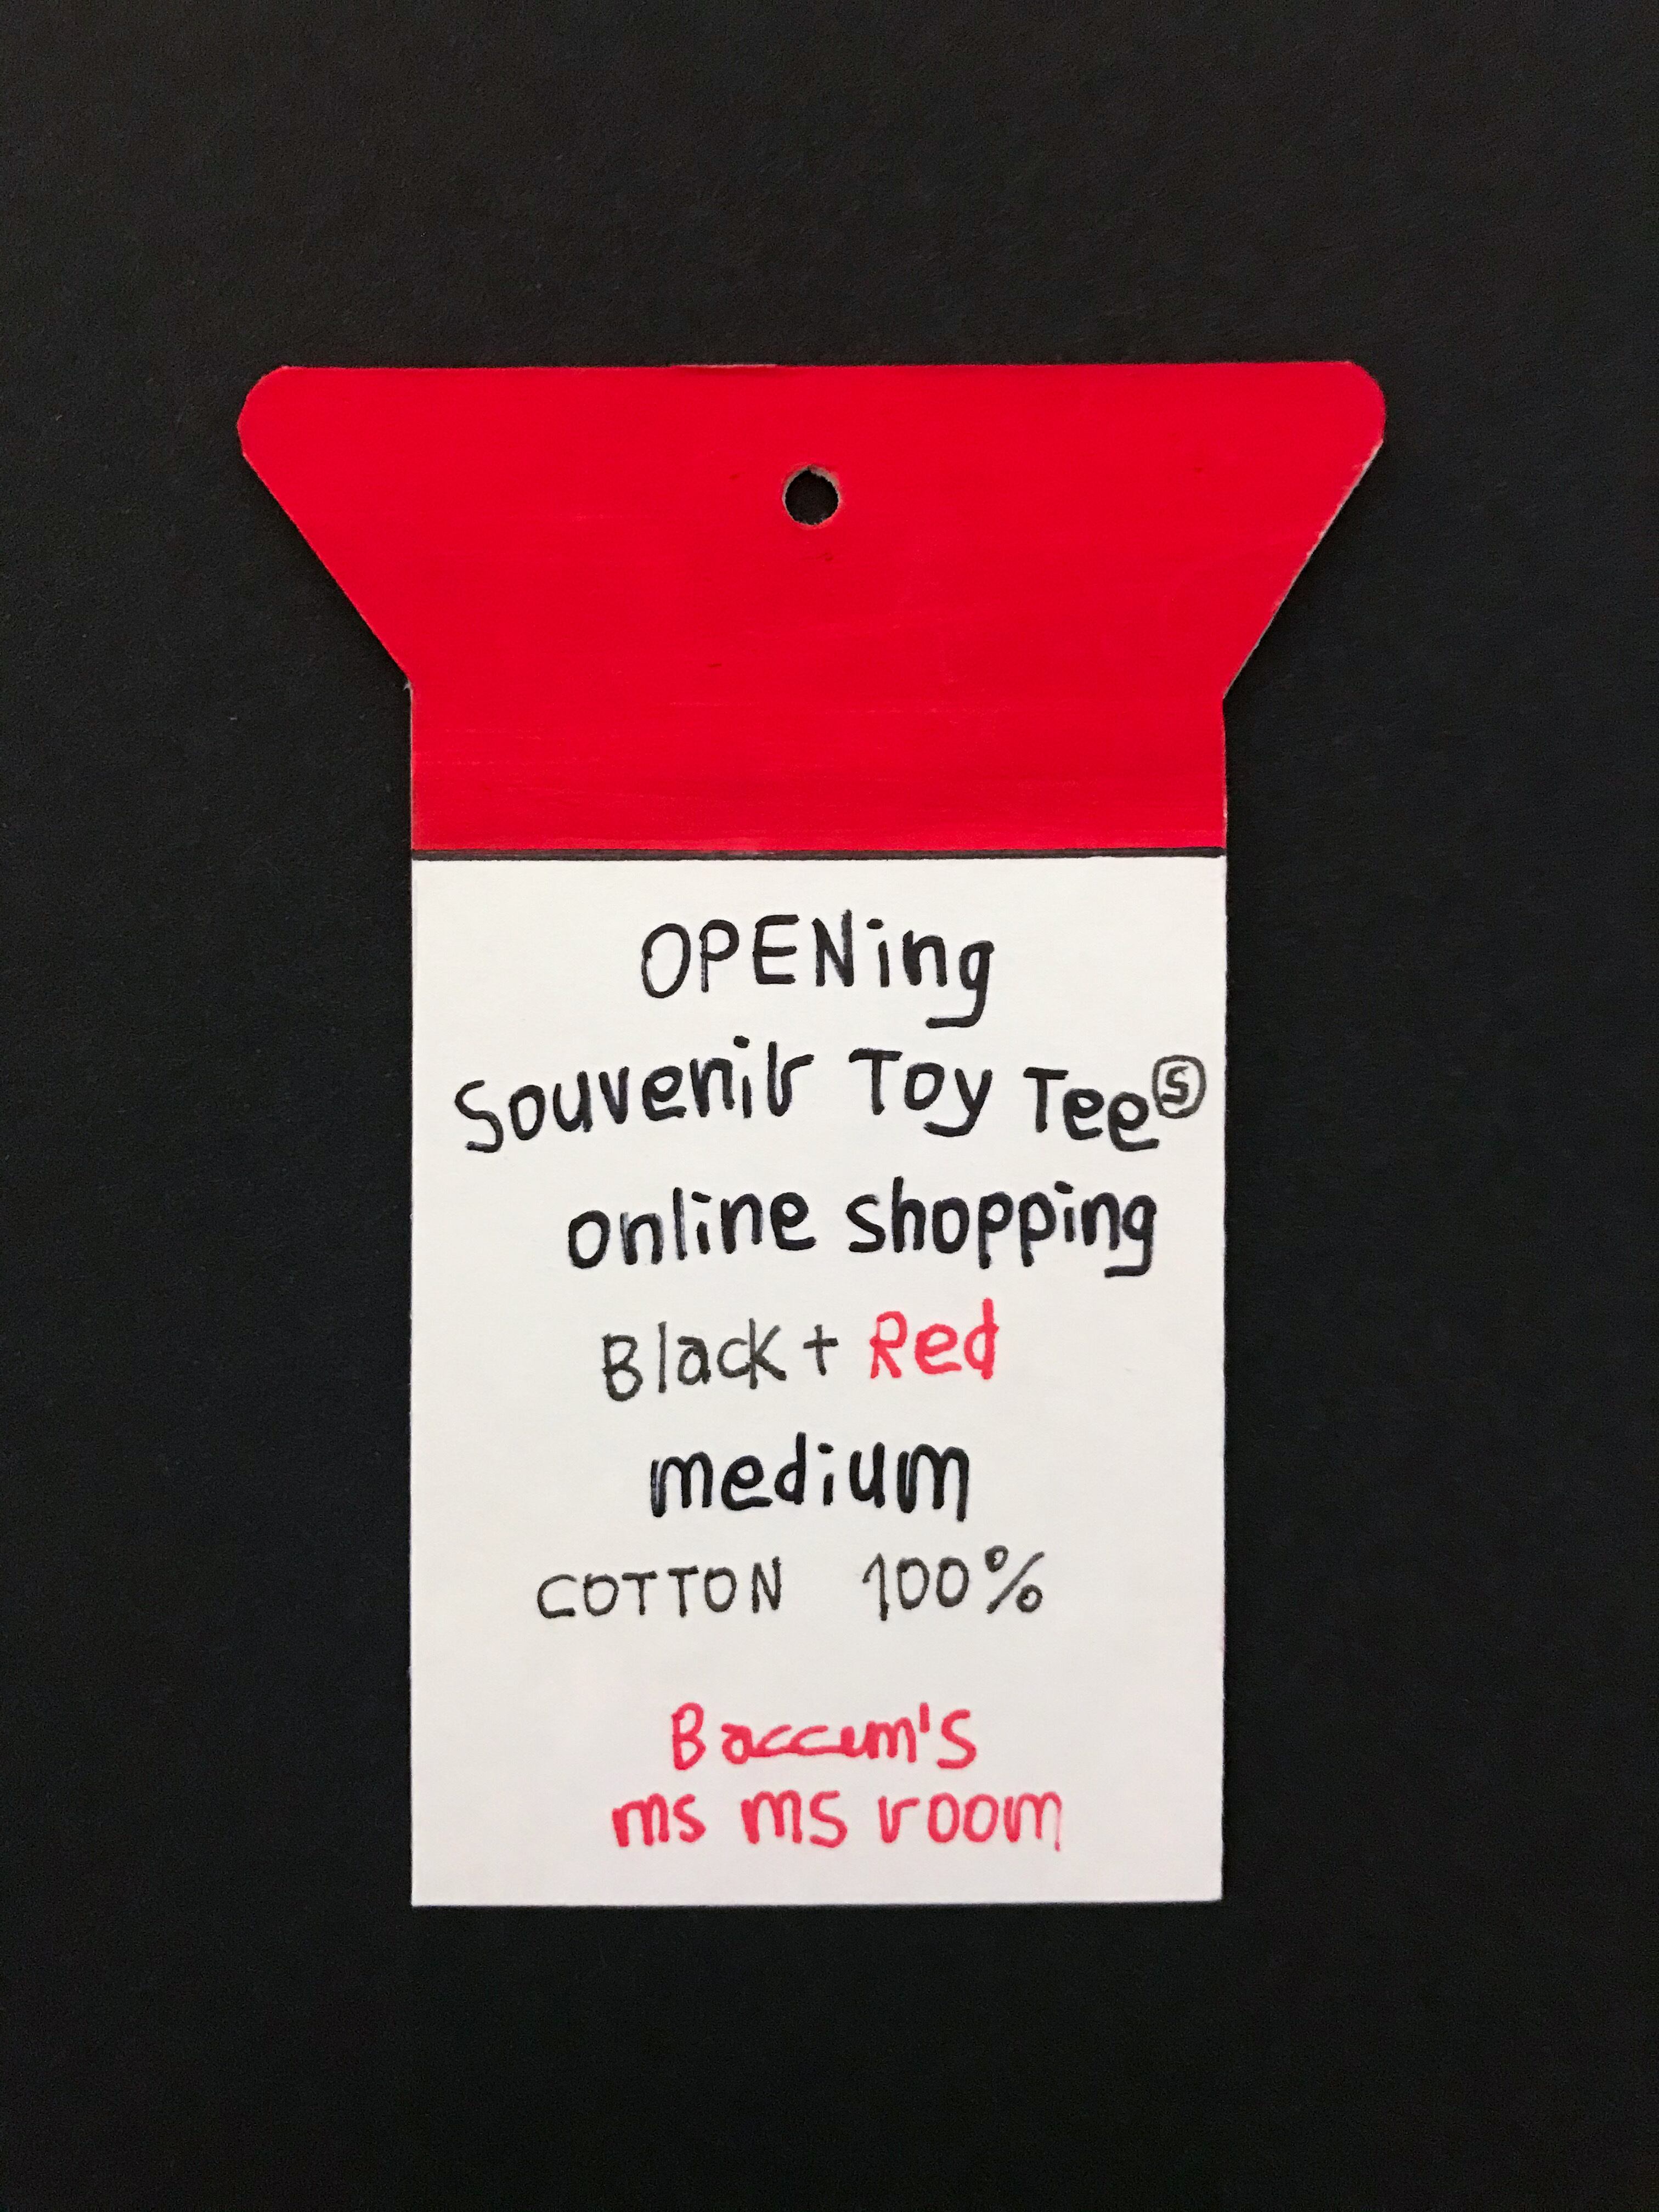 OPENing
Souvenir Toy Teeⓢ
online shopping
Black + Red
medium
COTTON 100%
Baccum's
ms ms room